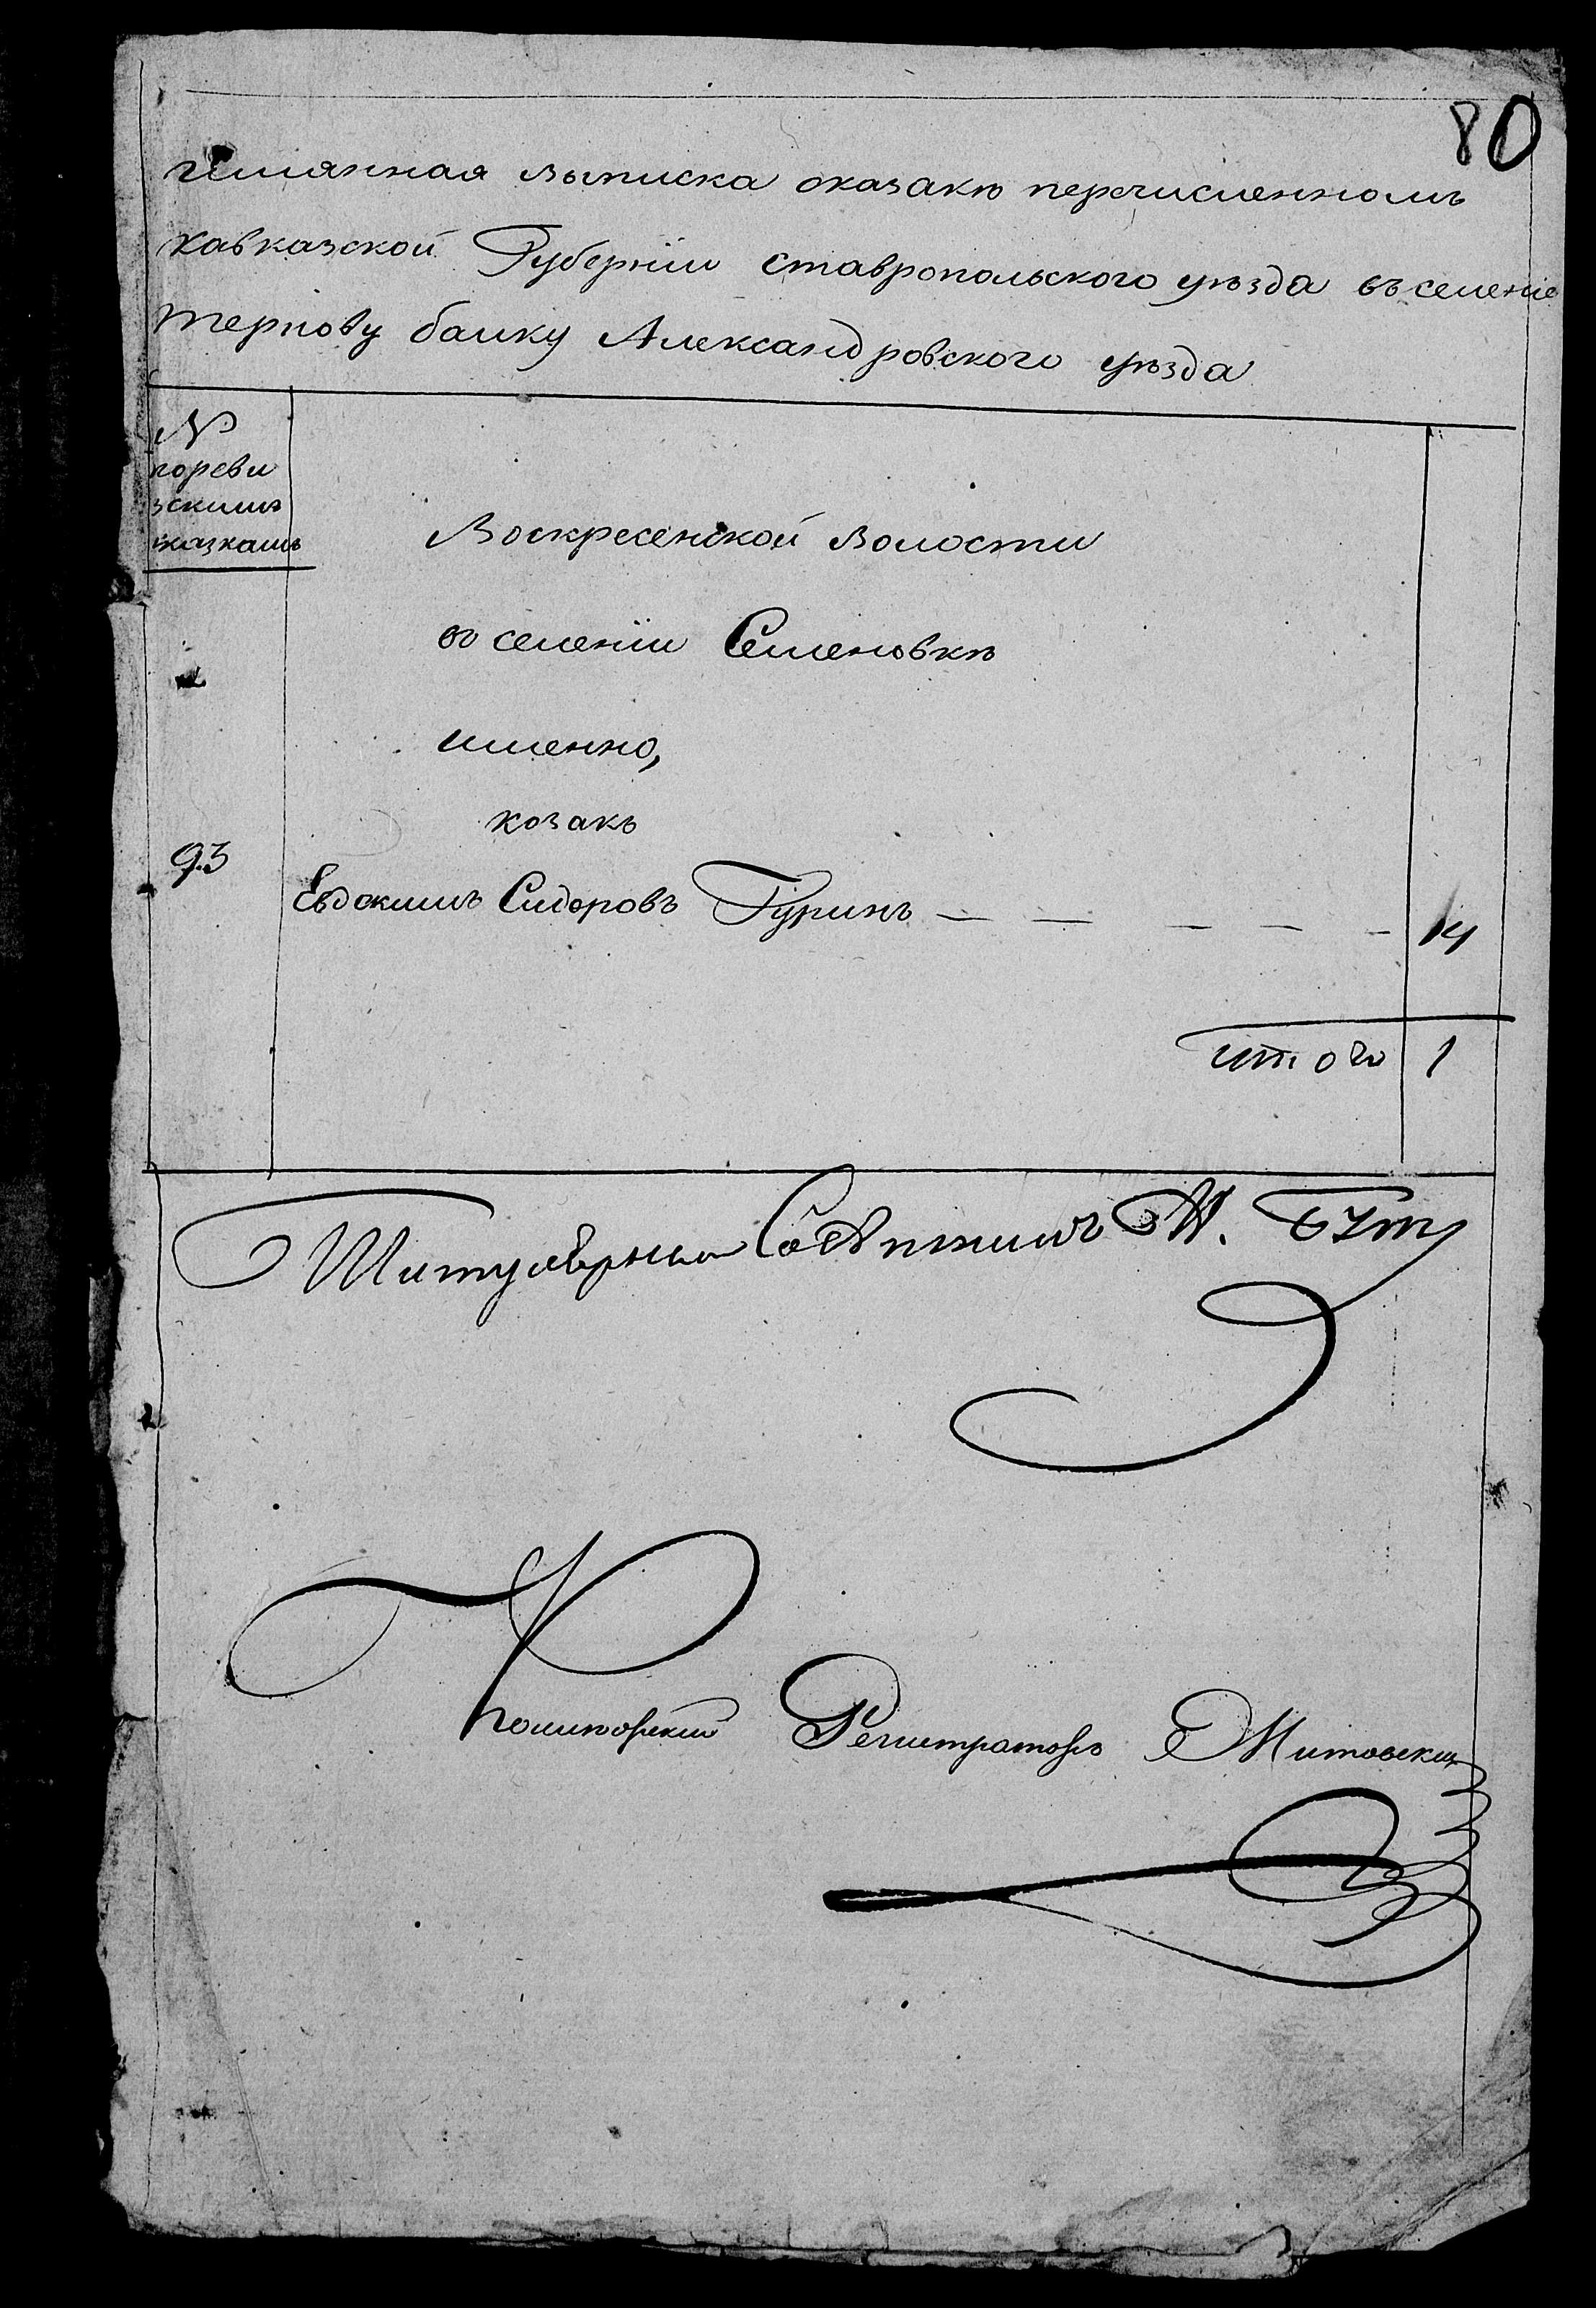 80
имянная выписка оказакѣ перечисленномъ
кавказской Губернїи ставропольского уѣзда въ селенїе
тернову балку Александровского уѣзда
№
пореви
зскимъ
сказкамъ
Воскресенской волости
въ селенїи Семеновкѣ
имменно,
козакъ
93
Евдокимъ Сидоровъ Гуринъ — — — — —
14
итого 1
Титулярный Совѣтникъ
Колежский Регистраторъ Митовский